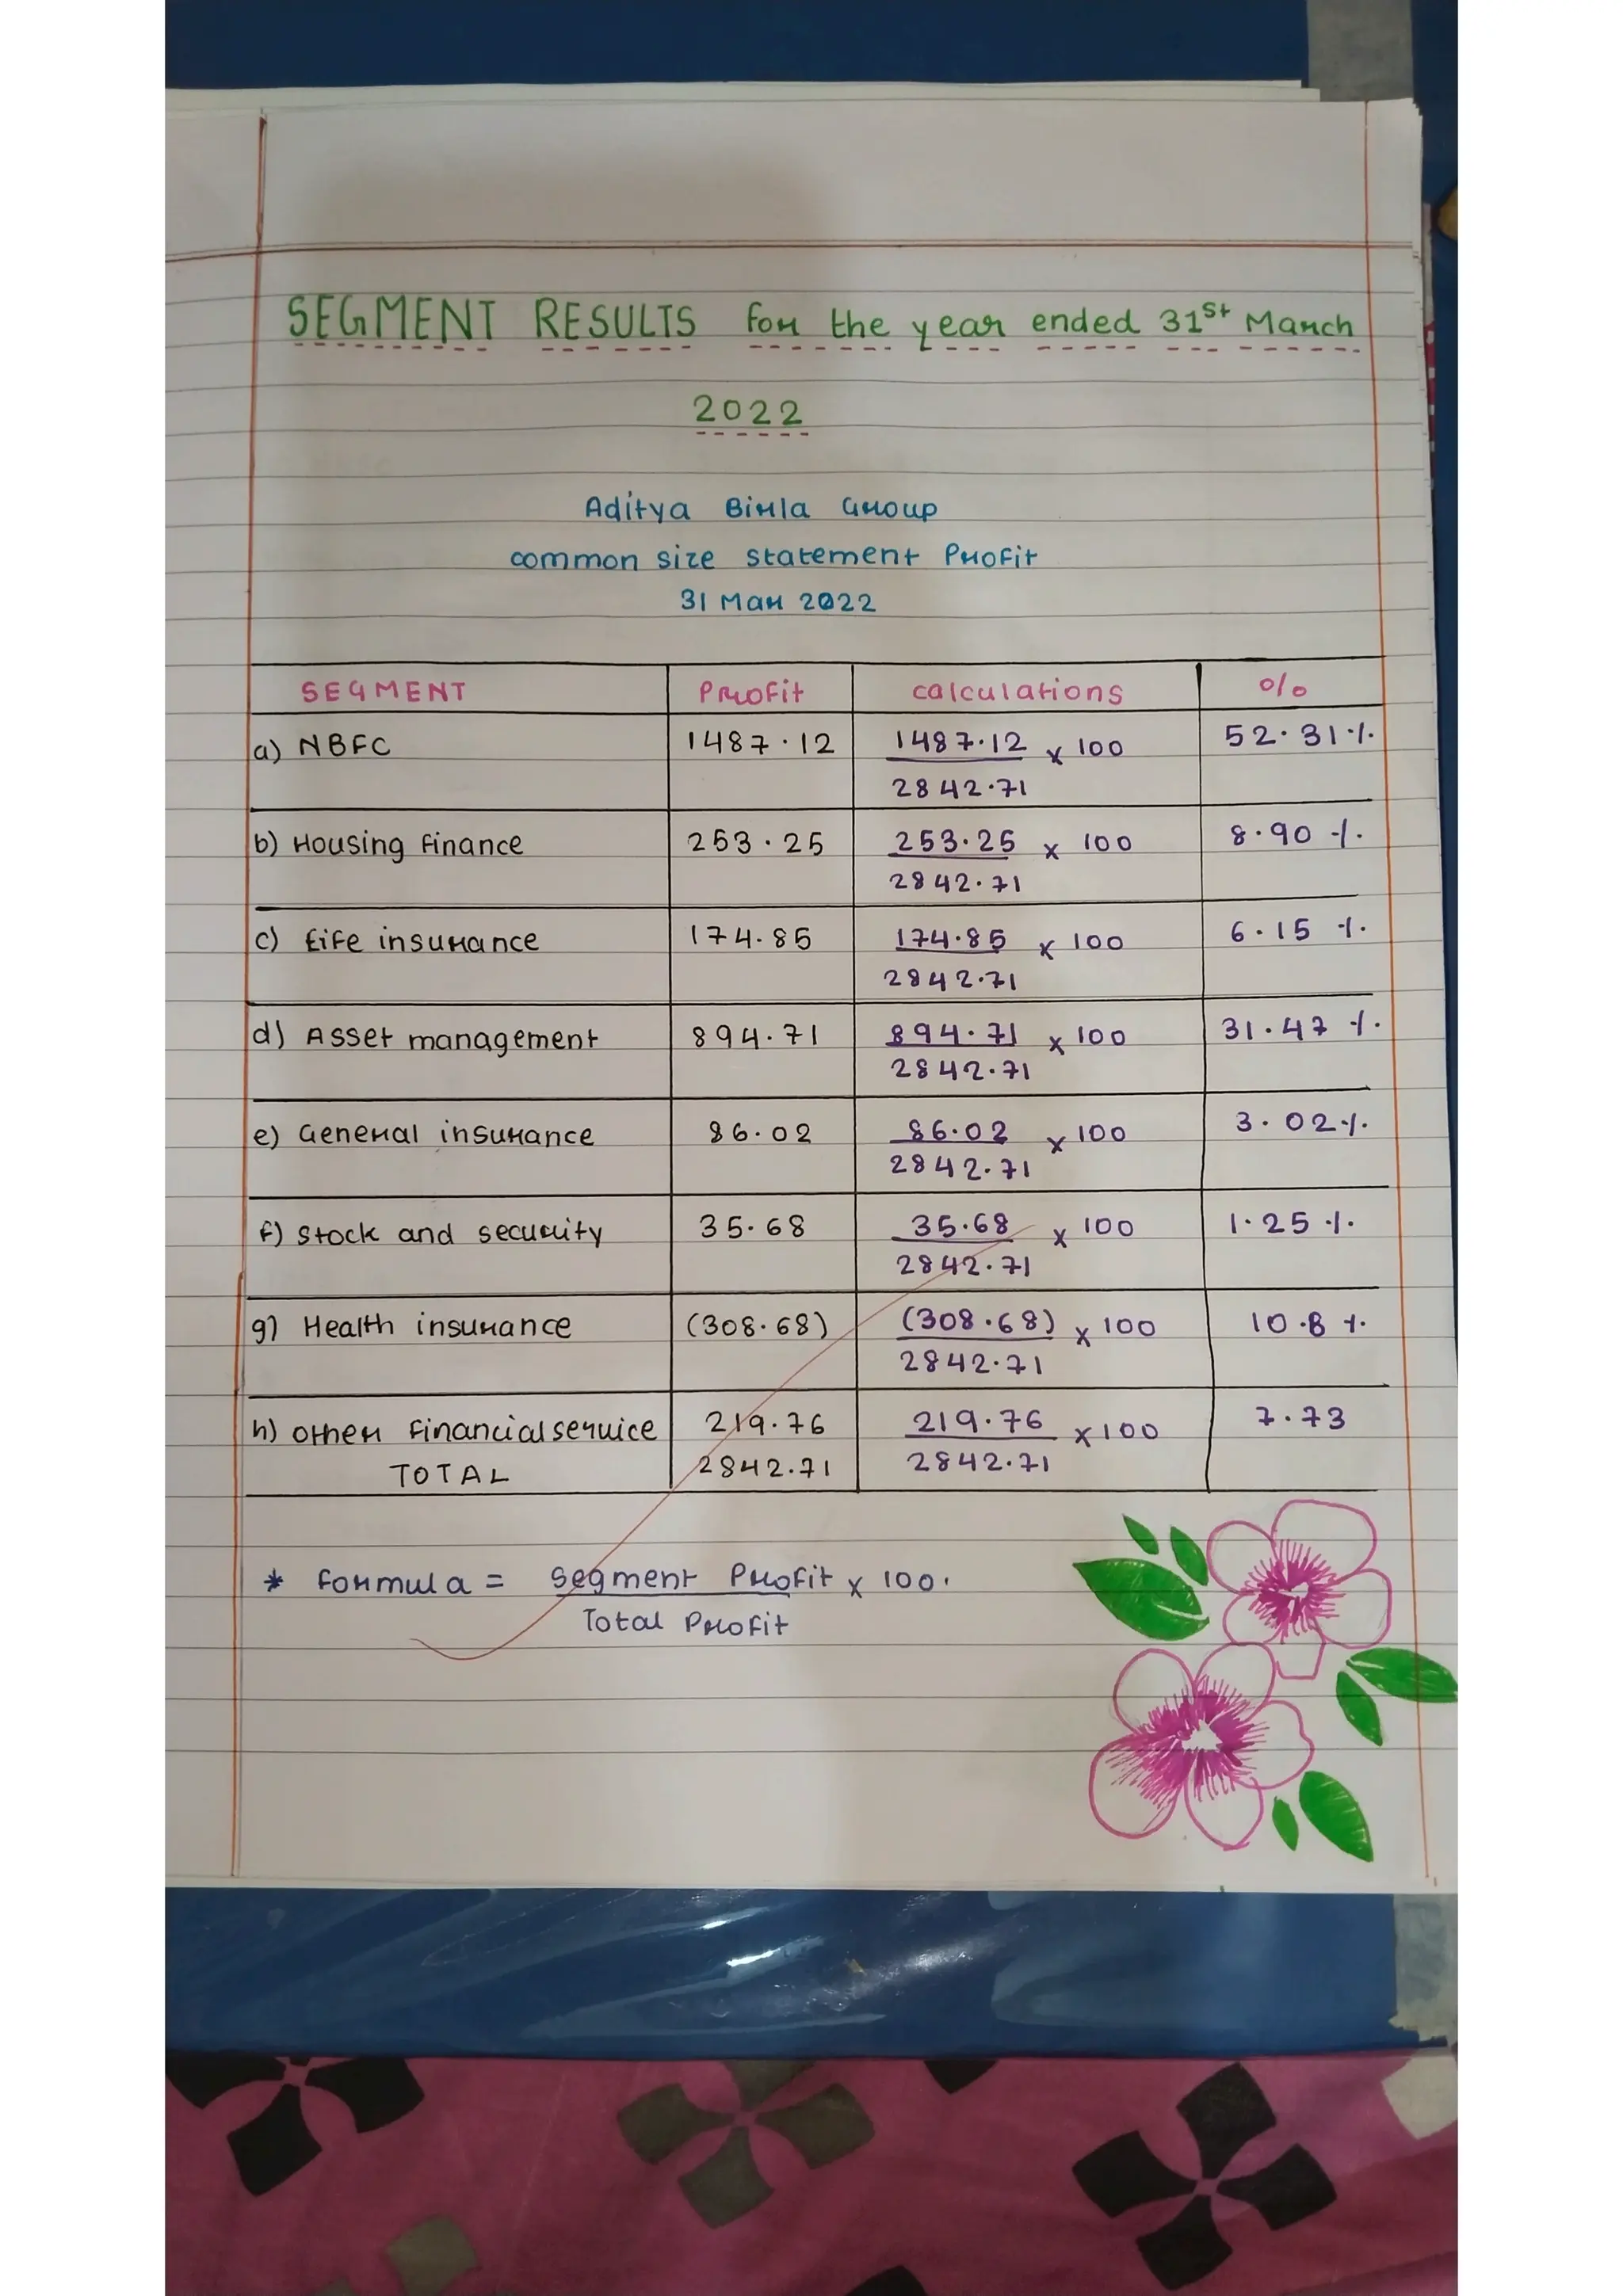 SEGMENT RESULTS for the year ended 31st March
2022
Aditya Birla Group
common size statement Profit
31 Mar 2022
SEGMENT Profit calculations %
a) NBFC 1487.12 1487.12 x 100 52.31%
2842.71
b) Housing finance 253.25 253.25 x 100 8.90 %
2842.71
c) Life insurance 174.85 174.85 x 100 6.15 %
2842.71
d) Asset management 894.71 894.71 x 100 31.47 %
2842.71
e) General insurance 86.02 86.02 x 100 3.02%
2842.71
f) Stock and security 35.68 35.68 x 100 1.25 %
2842.71
g) Health insurance (308.68) (308.68) x 100 10.8 %
2842.71
h) other financial service 219.76 219.76 x 100 7.73
TOTAL 2842.71 2842.71
* formula = Segment Profit x 100.
Total Profit